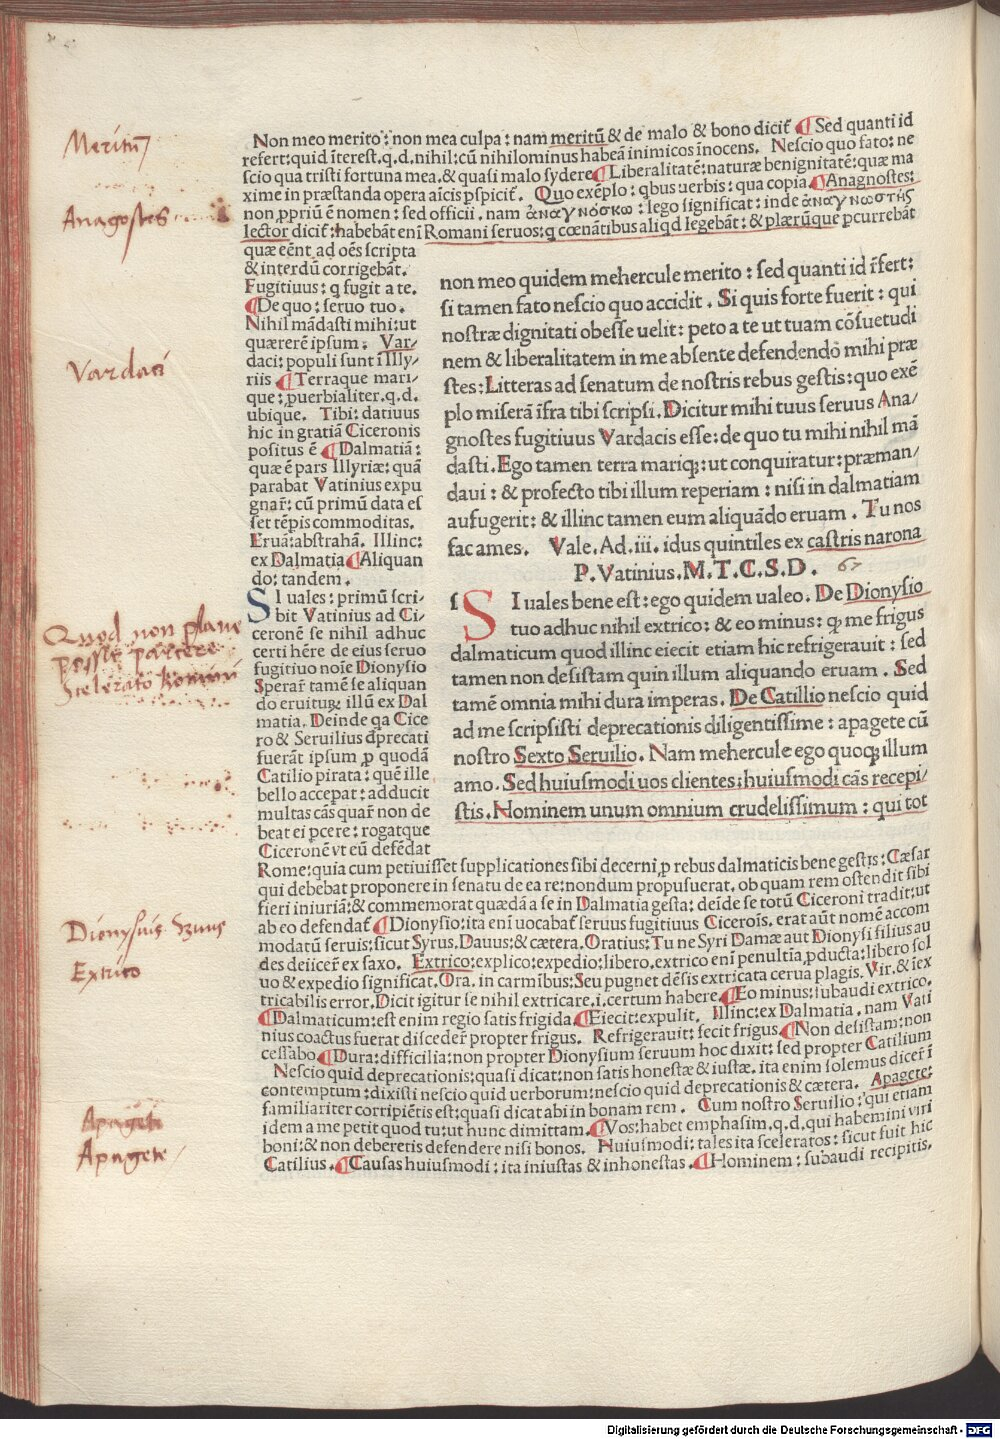 Non meo merito: non mea culpa: nam meritũ & de malo & bono dicit᷑ ¶ Sed quanti id
refert: quid ĩterest.q.d.nihil: cũ nihilominus habeã inimicos ĩnocens. Nescio quo fato: ne
scio qua tristi fortuna mea.& quasi malo sydere ¶ Liberalitatẽ: naturæ benignitatẽ: quæ ma
xime in præstanda opera aĩcis ꝑspicit᷑. Quo exẽplo: qbus uerbis: qua copia. ¶ Anagnostes:
non ꝓpriũ ẽ nomen: sed officii. nam ἀναγνόσκω: lego significat: inde ἀναγνωστής
lector dicit᷑: habebãt enĩ Romani seruos: q cœnãtibus aliqd legebãt: & plærũque ꝑcurrebãt
quæ eẽnt ad oẽs scripta
& interdũ corrigebãt.
Fugitiuus: q fugit a te.
¶ De quo: seruo tuo.
Nihil mãdasti mihi: ut
quærerẽ ipsum. Var-
daci: populi sunt ĩ Illy-
riis ¶ Terraque mari-
que: ꝓuerbialiter.q.d.
ubique. Tibi: datiuus
hic in gratiã Ciceronis
positus ẽ ¶ Dalmatiã:
quæ ẽ pars Illyriæ: quã
parabãt Vatinius expu
gnar̃: cũ primũ data es
set tẽpis commoditas.
Eruã: abstrahã. Illinc:
ex Dalmatia ¶ Aliquan
do: tandem.
SI uales: primũ scri-
bit Vatinius ad Ci-
ceronẽ se nihil adhuc
certi hẽre de eius seruo
fugitiuo noĩe Dionysio
Sperar̃ tamẽ se aliquan
do eruiturꝫ illũ ex Dal
matia. Deinde qa Cice
ro & Seruilius dꝑrecati
fuerãt ipsum ꝓ quodã
Catilio pirata: quẽ ille
bello acceꝑat: adducit
multas cãs quar̃ non de
beat ei ꝑcere: rogatque
Ciceronẽ vt eũ defẽdat
non meo quidem mehercule merito: sed quanti id ĩfert:
si tamen fato nescio quo accidit. Si quis forte fuerit: qui
nostræ dignitati obesse uelit: peto a te ut tuam cõsuetudi
nem & liberalitatem in me absente defendendo mihi præ
stes: Litteras ad senatum de nostris rebus gestis: quo exẽ
plo miserã ĩfra tibi scripsi. Dicitur mihi tuus seruus Ana/
gnostes fugitiuus Vardacis esse: de quo tu mihi nihil mã
dasti. Ego tamen terra mariqꝫ: ut conquiratur: præman/
daui: & profecto tibi illum reperiam: nisi in dalmatiam
aufugerit: & illinc tamen eum aliquãdo eruam. Tu nos
fac ames. Vale. Ad. iii. idus quintiles ex castris narona
P. Vatinius. M. T. C. S. D. 67
s SI uales bene est: ego quidem ualeo. De Dionysio
tuo adhuc nihil extrico: & eo minus: ꝙ me frigus
dalmaticum quod illinc eiecit etiam hic refrigerauit: sed
tamen non desistam quin illum aliquando eruam. Sed
tamẽ omnia mihi dura imperas. De Catillio nescio quid
ad me scripsisti deprecationis diligentissime: apagete cũ
nostro Sexto Seruilio. Nam mehercule ego quoqꝫ illum
amo. Sed huiusmodi uos clientes: huiusmodi cãs recepi/
stis. Nominem unum omnium crudelissimum: qui tot
Rome: quia cum petiuisset supplicationes sibi decerni, ꝓ rebus dalmaticis bene gestis: Cæsar
qui debebat proponere in senatu de ea re: nondum proposuerat. ob quam rem ostendit sibi
fieri iniuriã: & commemorat quædã a se in Dalmatia gesta: deĩde se totũ Ciceroni tradit: ut
ab eo defendat᷑ ¶ Dionysio: ita enĩ uocabat᷑ seruus fugitiuus Ciceroĩs. erat aũt nomẽ accom
modatũ seruis: sicut Syrus. Dauus: & cætera. Oratius: Tu ne Syri Damæ aut Dionysi filius au
des deiicer̃ ex saxo. Extrico: explico: expedio: libero. extrico enĩ penultia ꝓducta: libero sol
uo & expedio significat. Ora. in carmĩbus: Seu pugnet dẽsis extricata cerua plagis. Vir. & ĩex
tricabilis error. Dicit igitur se nihil extricare.i. certum habere. ¶ Eo minus: subaudi extrico.
¶ Dalmaticum: est enim regio satis frigida ¶ Eiecit: expulit. Illinc: ex Dalmatia. nam Vati
nius coactus fuerat disceder̃ propter frigus. Refrigerauit: fecit frigus ¶ Non desistam: non
cessabo ¶ Dura: difficilia: non propter Dionysium seruum hoc dixit: sed propter Catilium
Nescio quid deprecationis: quasi dicat: non satis honestæ & iustæ. ita enim solemus dicer̃ ĩ
contemptum: dixisti nescio quid uerborum: nescio quid deprecationis & cætera. Apagete:
familiariter corripiẽtis est: quasi dicat abi in bonam rem. Cum nostro Seruilio: qui etiam
idem a me petit quod tu: ut hunc dimittam. ¶ Vos: habet emphasim. q.d. qui habemini uiri
boni: & non debereris defendere nisi bonos. Huiusmodi: tales ita sceleratos: sicut fuit hic
Catilius. ¶ Causas huiusmodi: ita iniustas & inhonestas. ¶ Hominem: subaudi recipitis.
Meritũ
Anagostes
Vardaci
Quod non plane
posse parcere
Scelerato homini
Dionysius Seruus
Extrico
Apagete
Apagete
Digitalisierung gefördert durch die Deutsche Forschungsgemeinschaft - DFG